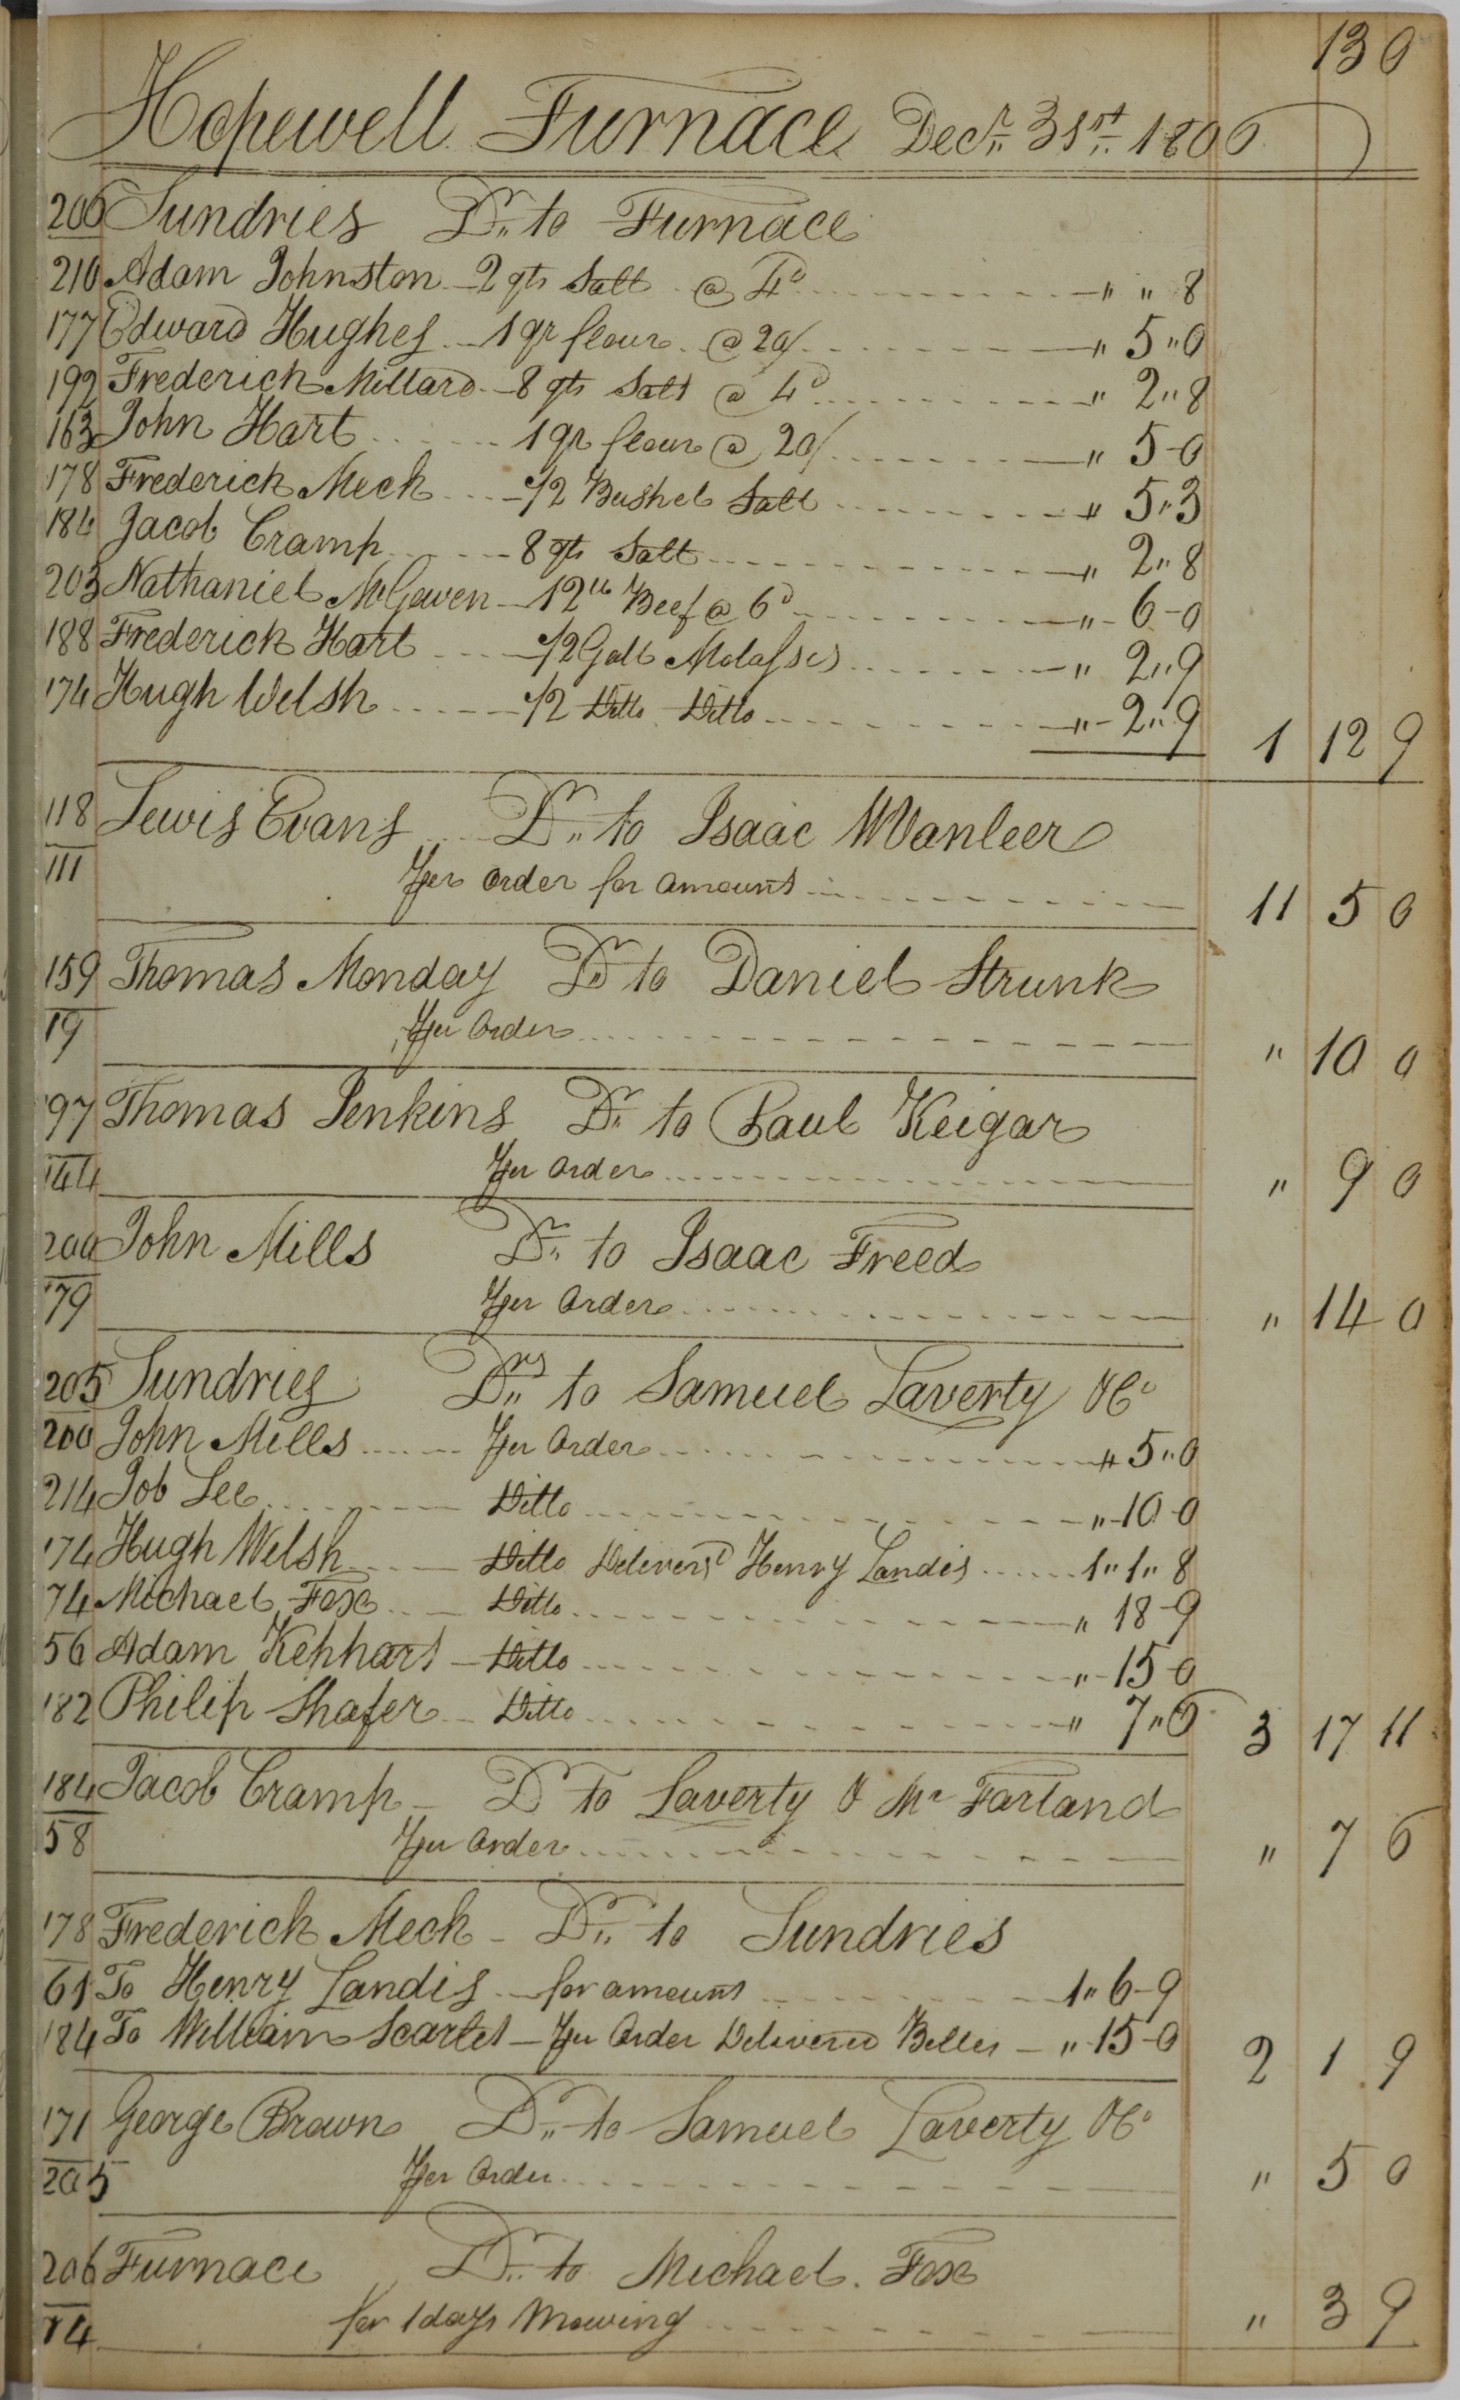 130
Hopewell Furnace Decr. 31st. 1806
206 Sundries Dr. to Furnace
210 Adam Johnston 2 qts Salt @ 4d " " 8
177 Edward Hughes 1 qr flour @ 20/ " 5 " 0
192 Frederick Millard 8 qts Salt @ 4d " 2 " 8
163 John Hart 1 qr flour @ 20/ " 5 - 0
178 Frederick Meck 1/2 Bushel Salt " 5 " 3
184 Jacob Cramp 8 qts Salt " 2 " 8
203 Nathaniel McGowen 12 lb Beef @ 6d " 6 - 0
188 Frederick Hart 1/2 Gall Molasses " 2 " 9
174 Hugh Welsh 1/2 Ditto Ditto " 2 " 9 1 12 9
118 Lewis Evans Dr. to Isaac WVanleer
111 Per Order for amount 11 5 0
159 Thomas Monday Dr to Daniel Strunk
19 Per Order " 10 0
197 Thomas Jenkins Dr. to Paul Keigar
144 Per Order " 9 0
200 John Mills Dr. to Isaac Freed
179 Per Order " 14 0
205 Sundries Drs to Samuel Laverty & Co
200 John Mills Per Order " 5 " 0
214 Job Lee Ditto " 10 0
174 Hugh Welsh Ditto Deliverd Henry Landis 1 " 1 " 8
74 Michael Fox Ditto " 18 - 9
56 Adam Kephart Ditto " 15 0
182 Philip Shafer Ditto " 7 " 6 3 17 11
184 Jacob Cramp Dr to Laverty & Mc Farland
58 Per Order " 7 6
178 Frederick Meck Dr. to Sundries
61 To Henry Landis for amount 1 " 6 - 9
184 To William Scarlet Per Order Delivered Belles " 15 - 0 2 1 9
171 George Brown Dr. to Samuel Laverty & Co
205 Per Order " 5 0
206 Furnace Dr. to Michael Fox
74 for 1 days Mowing " 3 9